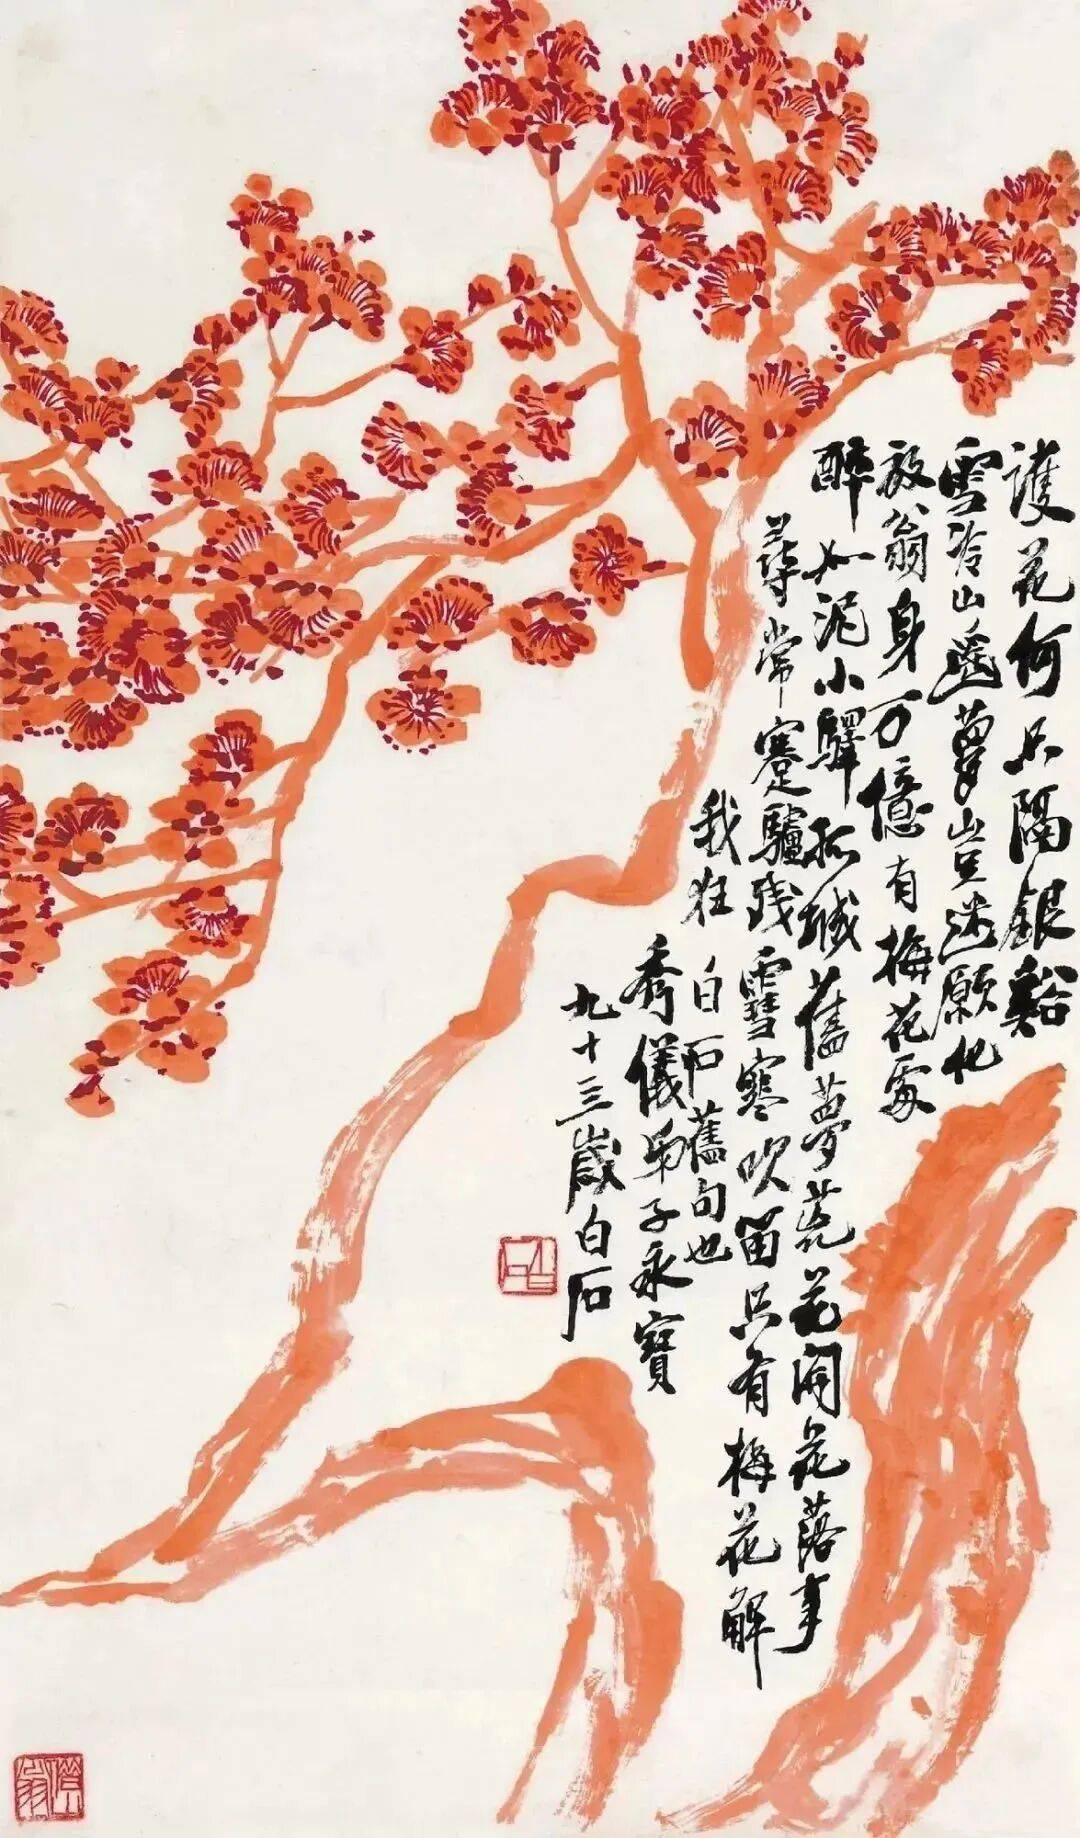 護花何只隔銀谿
雪冷山遙夢豈迷願化
放翁身万億有梅花處
醉如泥小驛孤城舊夢荒花開花落事
尋常蹇驢残雪寒吹笛只有梅花解
我狂 白石舊句也
秀儀弟子永寶
九十三歲白石
白石
借山翁